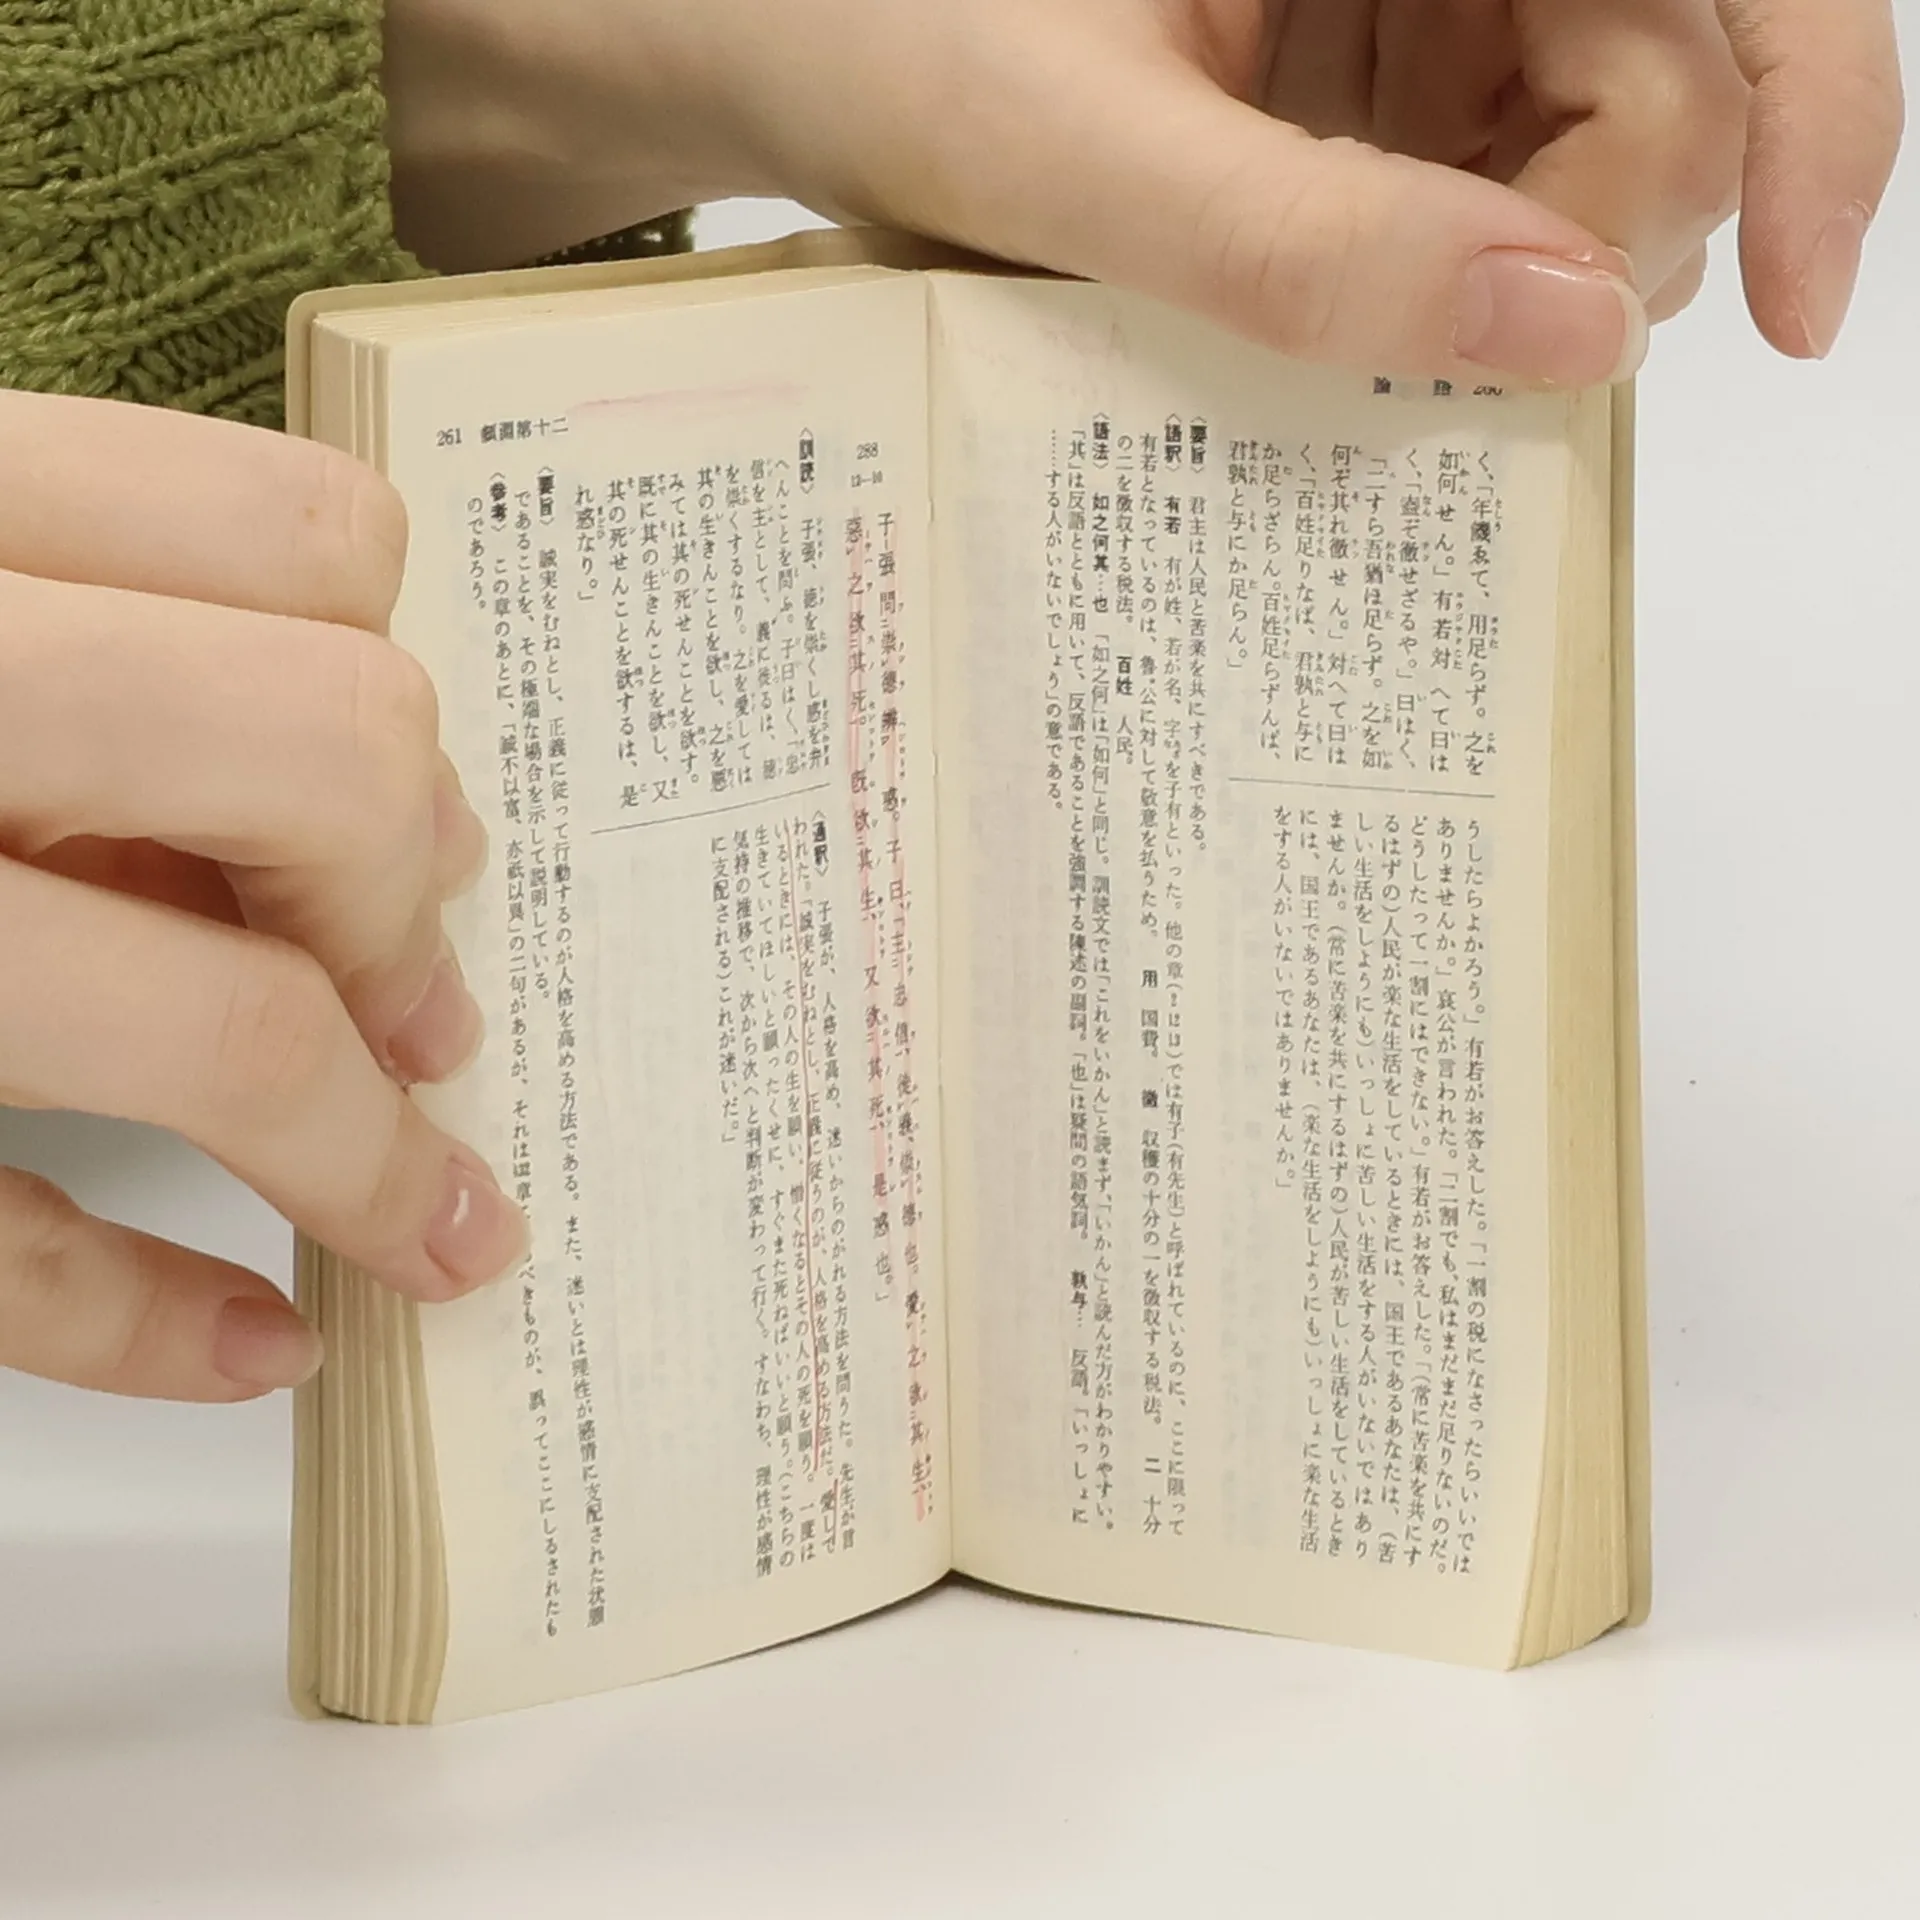 論語 260
く、「年饑ゑて、用足らず。之を
如何せん。」有若対へて曰は
く、「盍ぞ徹せざるや。」曰はく、
「二すら吾猶ほ足らず。之を如
何ぞ其れ徹せん。」対へて曰は
く、「百姓足りなば、君孰と与に
か足らざらん。百姓足らずんば、
君孰と与にか足らん。」
うしたらよかろう。」有若がお答えした。「一割の税になさったらいいでは
ありませんか。」哀公が言われた。「二割でも、私はまだまだ足りないのだ。
どうしたって一割にはできない。」有若がお答えした。「(常に苦楽を共にす
るはずの)人民が楽な生活をしているときには、国王であるあなたは、(苦
しい生活をしようにも)いっしょに苦しい生活をする人がいないではあり
ませんか。(常に苦楽を共にするはずの)人民が苦しい生活をしているとき
には、国王であるあなたは、(楽な生活をしようにも)いっしょに楽な生活
をする人がいないではありませんか。」
〈要旨〉 君主は人民と苦楽を共にすべきである。
〈語釈〉 有若 有が姓、若が名、字を子有といった。他の章(212)では有子(有先生)と呼ばれているのに、ここに限って
有若となっているのは、魯公に対して敬意を払うため。 用 国費。 徹 収穫の十分の一を徴収する税法。 二 十分
の二を徴収する税法。 百姓 人民。
〈語法〉 如之何其…也 「如之何」は「如何」と同じ。訓読文では「これをいかん」と読まず、「いかん」と読んだ方がわかりやすい。
「其」は反語とともに用いて、反語であることを強調する陳述の副詞。「也」は疑問の語気詞。 孰与… 反語。「いっしょに
……する人がいないでしょう」の意である。
261 顔淵第十二
288
12—10
子張問崇徳辨惑。子曰、「主忠信、徙義、崇徳也。愛之欲其生、
惡之欲其死。既欲其生、又欲其死、是惑也。」
〈訓読〉 子張、徳を崇くし惑を弁
へんことを問ふ。子曰はく、「忠
信を主として、義に徙るは、徳
を崇くするなり。之を愛しては
其の生きんことを欲し、之を悪
みては其の死せんことを欲す。
既に其の生きんことを欲し、又
其の死せんことを欲するは、是
れ惑なり。」
〈通釈〉 子張が、人格を高め、迷いからのがれる方法を問うた。先生が言
われた。「誠実をむねとし、正義に従うのが、人格を高める方法だ。愛して
いるときには、その人の生を願い、憎くなるとその人の死を願う。一度は
生きていてほしいと願ったくせに、すぐまた死ねばいいと願う。(こちらの
気持の推移で、次から次へと判断が変わって行く。すなわち、理性が感情
に支配される)これが迷いだ。」
〈要旨〉 誠実をむねとし、正義に従って行動するのが人格を高める方法である。また、迷いとは理性が感情に支配された状態
であることを、その極端な場合を示して説明している。
〈参考〉 この章のあとに、「誠不以富、亦祇以異」の二句があるが、それは 章 べきものが、誤ってここにしるされたも
のであろう。